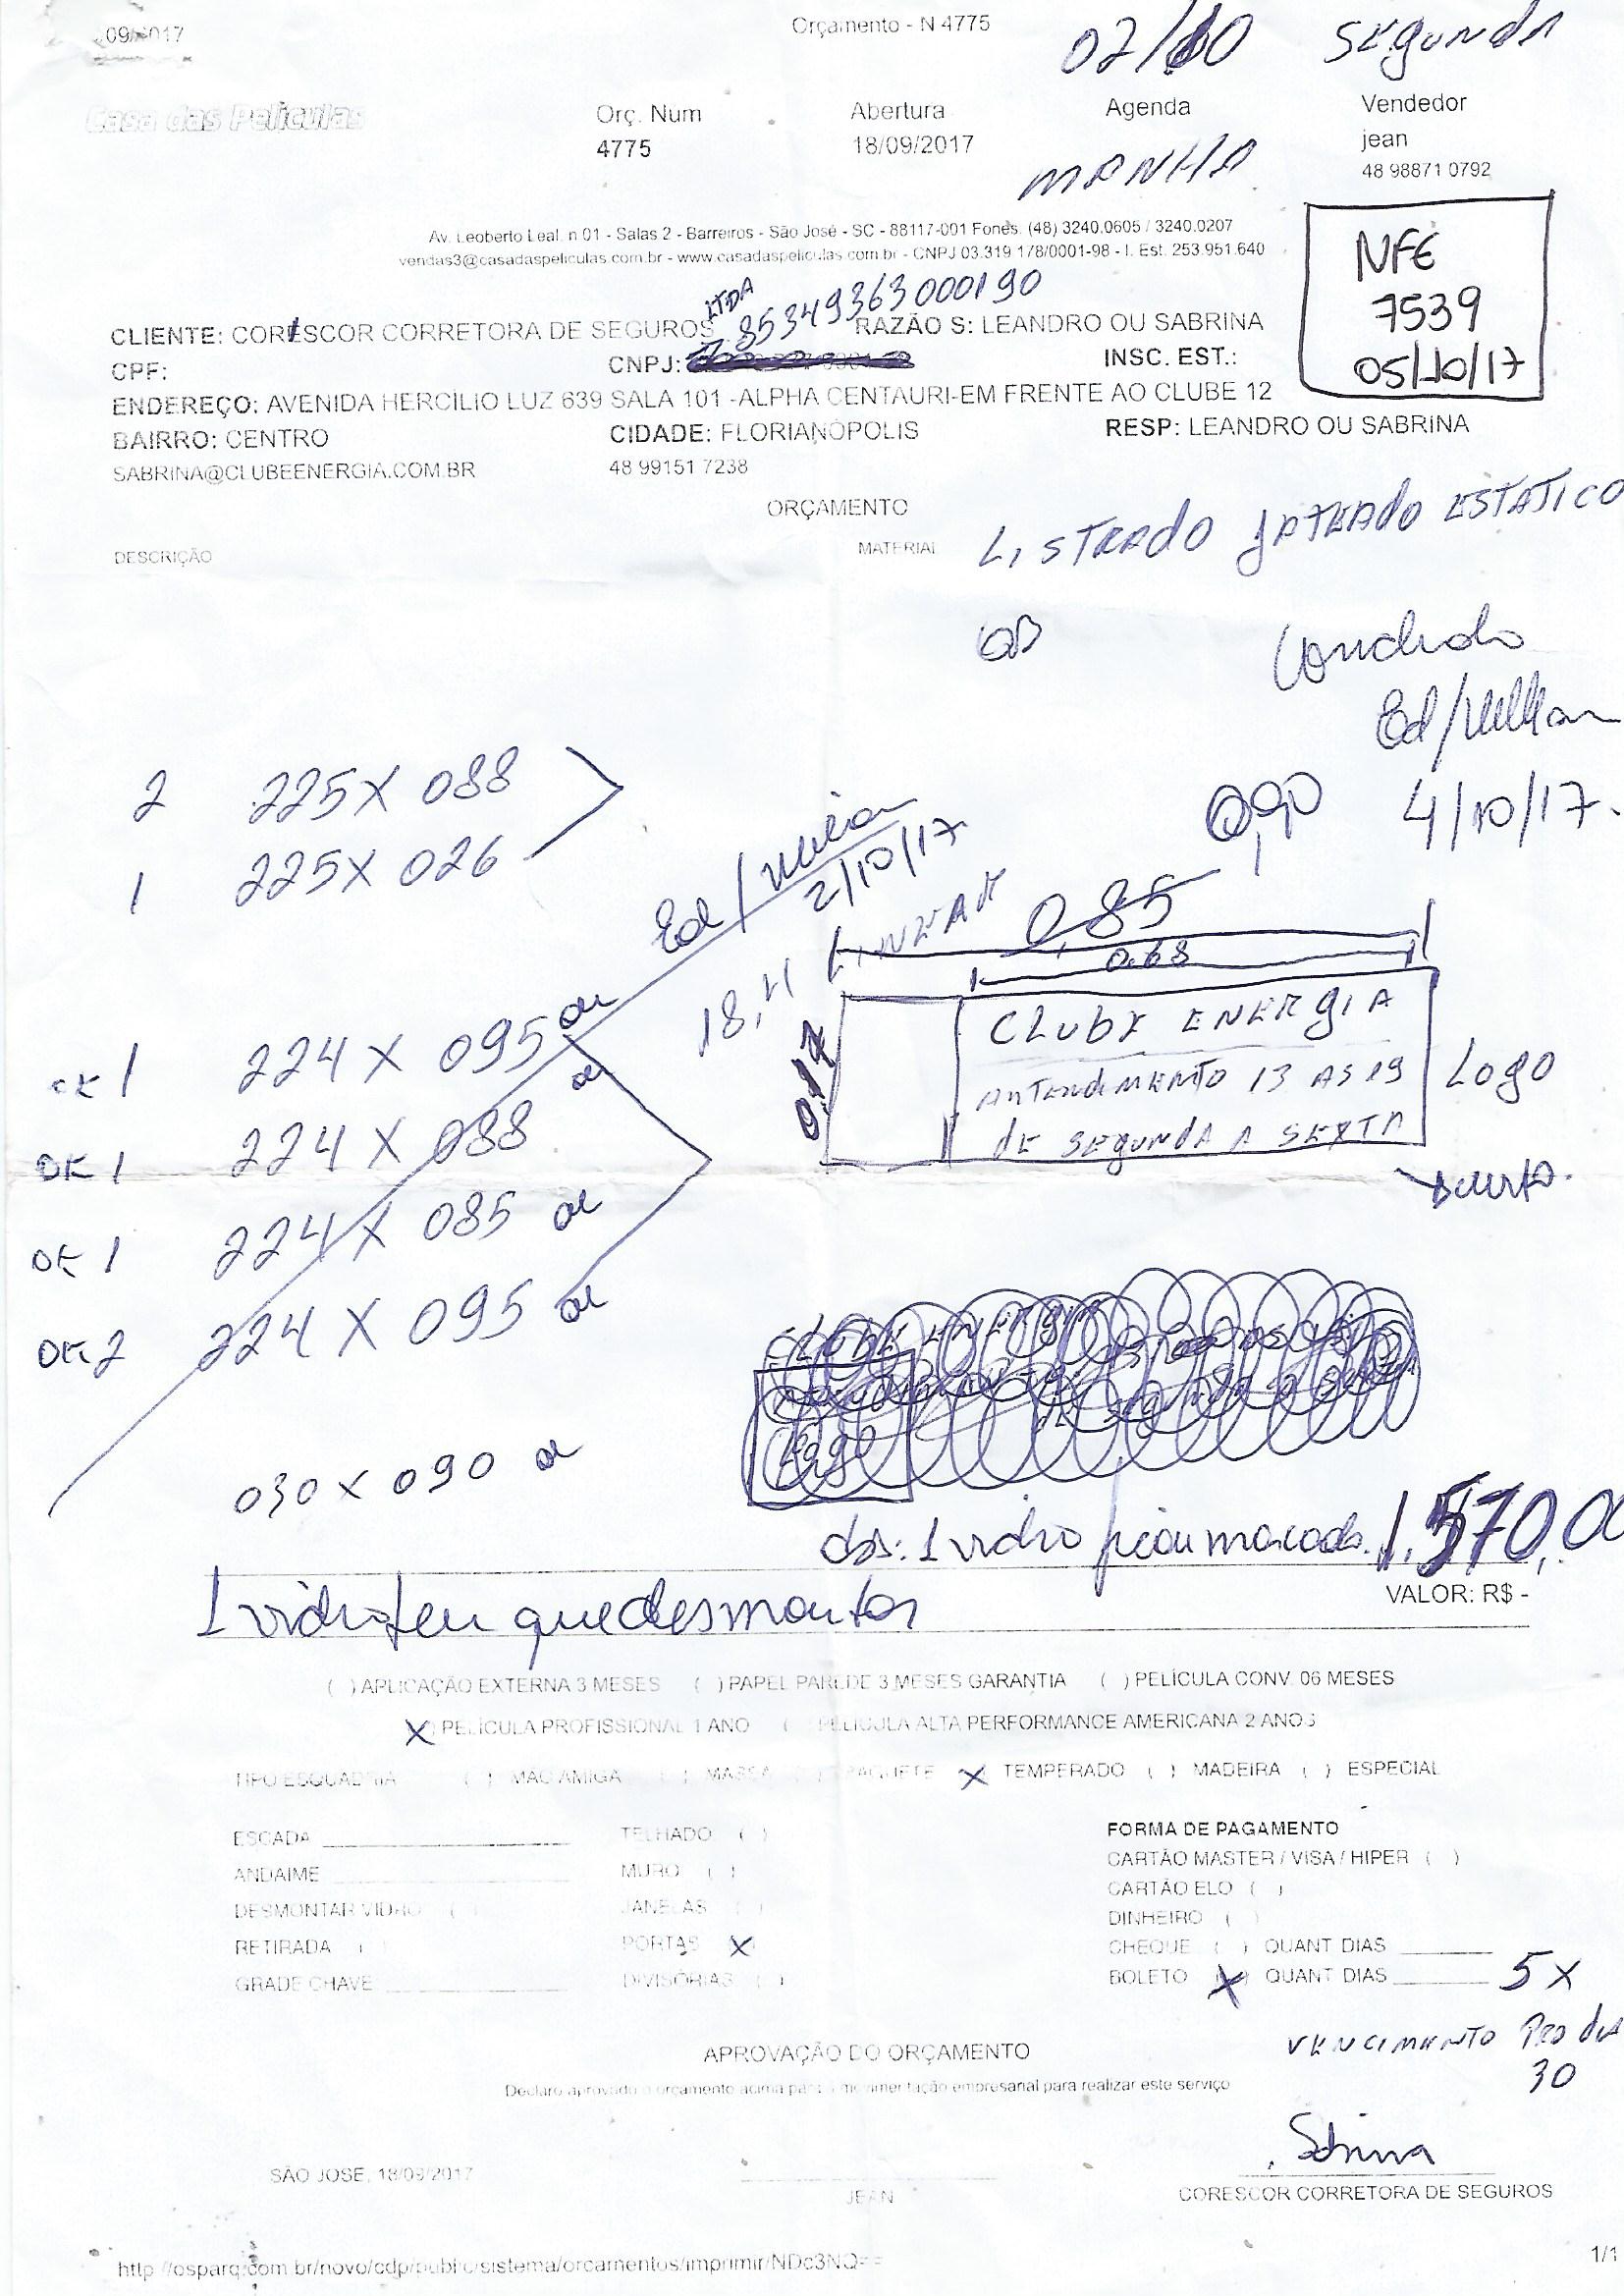 09/2017
Orçamento - N 4775
02/10 SEGUNDA
Casa das Películas
Orç. Num
Abertura
Agenda
Vendedor
4775
18/09/2017
MANHA
jean
48 98871 0792
Av. Leoberto Leal. n 01 - Salas 2 - Barreiros - São José - SC - 88117-001 Fones. (48) 3240.0605 / 3240.0207
vendas3@casadaspeliculas.com.br - www.casadaspeliculas.com.br - CNPJ 03.319.178/0001-98 - I. Est. 253.951.640
NFE
7539
05/10/17
LTDA 85349363000190
CLIENTE: CORESCOR CORRETORA DE SEGUROS RAZÃO S: LEANDRO OU SABRINA
CPF: CNPJ: INSC. EST.:
ENDEREÇO: AVENIDA HERCÍLIO LUZ 639 SALA 101 -ALPHA CENTAURI-EM FRENTE AO CLUBE 12
BAIRRO: CENTRO CIDADE: FLORIANÓPOLIS RESP: LEANDRO OU SABRINA
SABRINA@CLUBEENERGIA.COM.BR 48 99151 7238
ORÇAMENTO
DESCRIÇÃO MATERIAL
LISTRADO JATEADO ESTATICO
Ed/
4/10/17.
2 225 X 088
1 225 X 026
Ed/
2/10/17
18,4 LINEAR
0,90
0,85
0.68
0,17
CLUBE ENERGIA
ANTENDIMENTO 13 AS 19
DE SEGUNDA A SEXTA
Logo
OK 1 224 X 095 ok
OK 1 224 X 088 ok
OK 1 224 X 085 ok
OK 2 224 X 095 ok
030 X 090 ok
obs: 1 vidro ficou marcado. 1.570,00
VALOR: R$ -
1 vidro teu que desmontar
( ) APLICAÇÃO EXTERNA 3 MESES ( ) PAPEL PAREDE 3 MESES GARANTIA ( ) PELÍCULA CONV. 06 MESES
(X) PELÍCULA PROFISSIONAL 1 ANO ( ) PELÍCULA ALTA PERFORMANCE AMERICANA 2 ANOS
TIPO ESQUADRIA ( ) MAO AMIGA ( ) MASSA ( ) BAGUETE (X) TEMPERADO ( ) MADEIRA ( ) ESPECIAL
ESCADA
ANDAIME
DESMONTAR VIDRO ( )
RETIRADA ( )
GRADE CHAVE
TELHADO ( )
MURO ( )
JANELAS ( )
PORTAS (X)
DIVISÓRIAS ( )
FORMA DE PAGAMENTO
CARTÃO MASTER / VISA / HIPER ( )
CARTÃO ELO ( )
DINHEIRO ( )
CHEQUE ( ) QUANT DIAS
BOLETO (X) QUANT DIAS 5X
VENCIMENTO PRO dia
30
APROVAÇÃO DO ORÇAMENTO
Declaro aprovado o orçamento acima para a movimentação empresarial para realizar este serviço
SÃO JOSE, 18/09/2017
JEAN
Sabrina
CORESCOR CORRETORA DE SEGUROS
http://osparq.com.br/novo/cdp/public/sistema/orcamentos/imprimir/NDc3NQ==
1/1